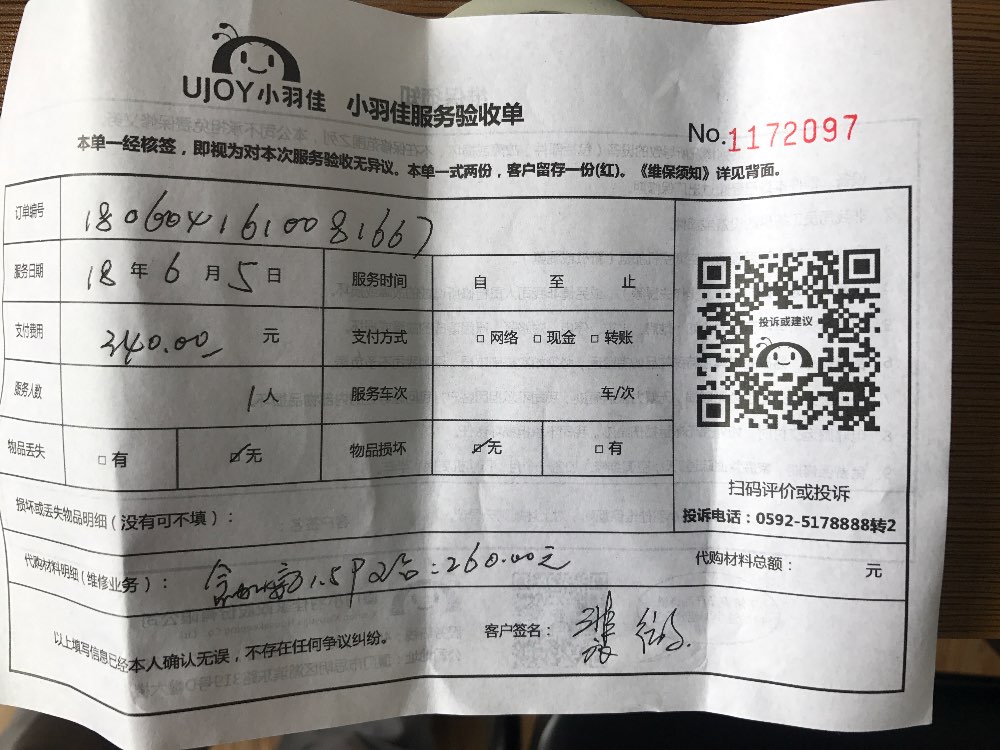 UJOY小羽佳 小羽佳服务验收单
No.1172097
本单一经核签，即视为对本次服务验收无异议。本单一式两份，客户留存一份(红)。《维保须知》详见背面。
订单编号 1806041610081667
服务日期 18 年 6 月 5 日 服务时间 自 至 止
支付费用 340.00 元 支付方式 □ 网络 □ 现金 □ 转账
投诉或建议
服务人数 1 人 服务车次 车/次
物品丢失 □ 有 ☑ 无 物品损坏 ☑ 无 □ 有
扫码评价或投诉
损坏或丢失物品明细（没有可不填）：
投诉电话：0592-5178888转2
代购材料明细（维修业务）： 1.5P 2台：260.00元
代购材料总额： 元
以上填写信息已经本人确认无误，不存在任何争议纠纷。
客户签名：